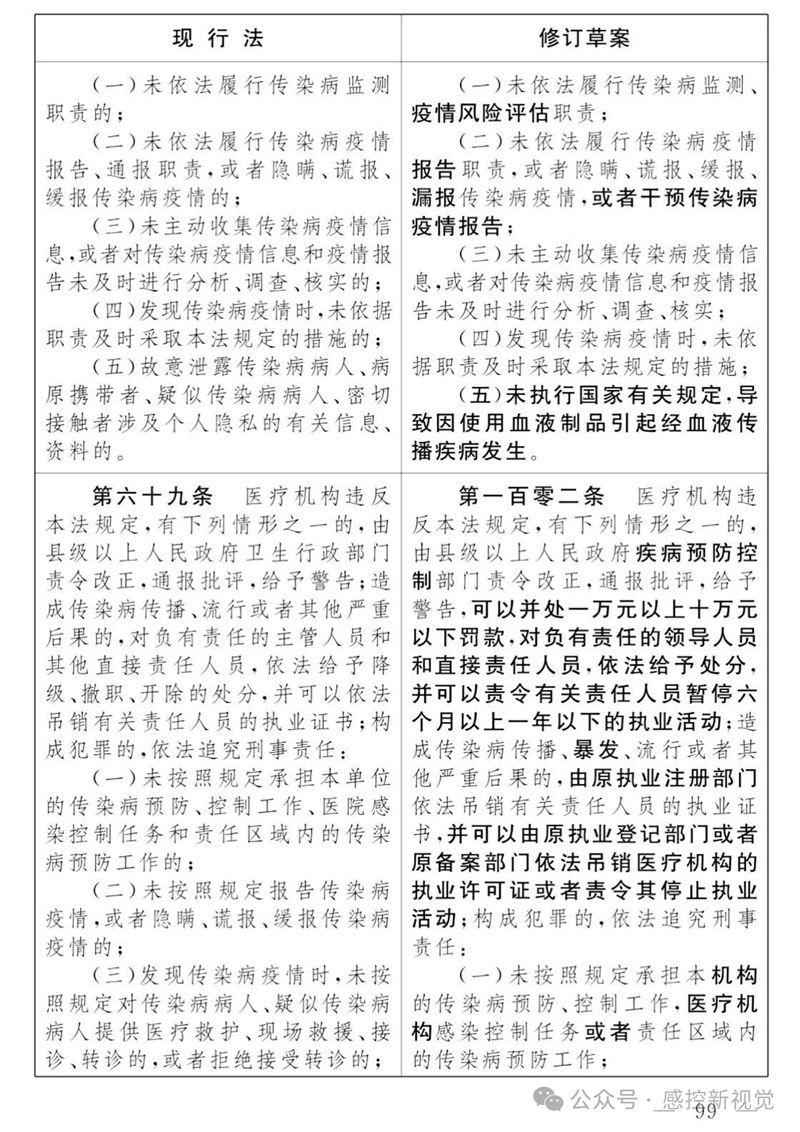 现行法
（一）未依法履行传染病监测
职责的；
（二）未依法履行传染病疫情
报告、通报职责，或者隐瞒、谎报、
缓报传染病疫情的；
（三）未主动收集传染病疫情信
息，或者对传染病疫情信息和疫情报
告未及时进行分析、调查、核实的；
（四）发现传染病疫情时，未依据
职责及时采取本法规定的措施的；
（五）故意泄露传染病病人、病
原携带者、疑似传染病病人、密切
接触者涉及个人隐私的有关信息、
资料的。
修订草案
（一）未依法履行传染病监测、
疫情风险评估职责；
（二）未依法履行传染病疫情
报告职责，或者隐瞒、谎报、缓报、
漏报传染病疫情，或者干预传染病
疫情报告；
（三）未主动收集传染病疫情信
息，或者对传染病疫情信息和疫情报
告未及时进行分析、调查、核实；
（四）发现传染病疫情时，未依
据职责及时采取本法规定的措施；
（五）未执行国家有关规定，导
致因使用血液制品引起经血液传
播疾病发生。
第六十九条　医疗机构违反
本法规定，有下列情形之一的，由
县级以上人民政府卫生行政部门
责令改正，通报批评，给予警告；造
成传染病传播、流行或者其他严重
后果的，对负有责任的主管人员和
其他直接责任人员，依法给予降
级、撤职、开除的处分，并可以依法
吊销有关责任人员的执业证书；构
成犯罪的，依法追究刑事责任：
（一）未按照规定承担本单位
的传染病预防、控制工作、医院感
染控制任务和责任区域内的传染
病预防工作的；
（二）未按照规定报告传染病
疫情，或者隐瞒、谎报、缓报传染病
疫情的；
（三）发现传染病疫情时，未按
照规定对传染病病人、疑似传染病
病人提供医疗救护、现场救援、接
诊、转诊的，或者拒绝接受转诊的；
第一百零二条　医疗机构违
反本法规定，有下列情形之一的，
由县级以上人民政府疾病预防控
制部门责令改正，通报批评，给予
警告，可以并处一万元以上十万元
以下罚款，对负有责任的领导人员
和直接责任人员，依法给予处分，
并可以责令有关责任人员暂停六
个月以上一年以下的执业活动；造
成传染病传播、暴发、流行或者其
他严重后果的，由原执业注册部门
依法吊销有关责任人员的执业证
书，并可以由原执业登记部门或者
原备案部门依法吊销医疗机构的
执业许可证或者责令其停止执业
活动；构成犯罪的，依法追究刑事
责任：
（一）未按照规定承担本机构
的传染病预防、控制工作，医疗机
构感染控制任务或者责任区域内
的传染病预防工作；
公众号·感控新视觉
99